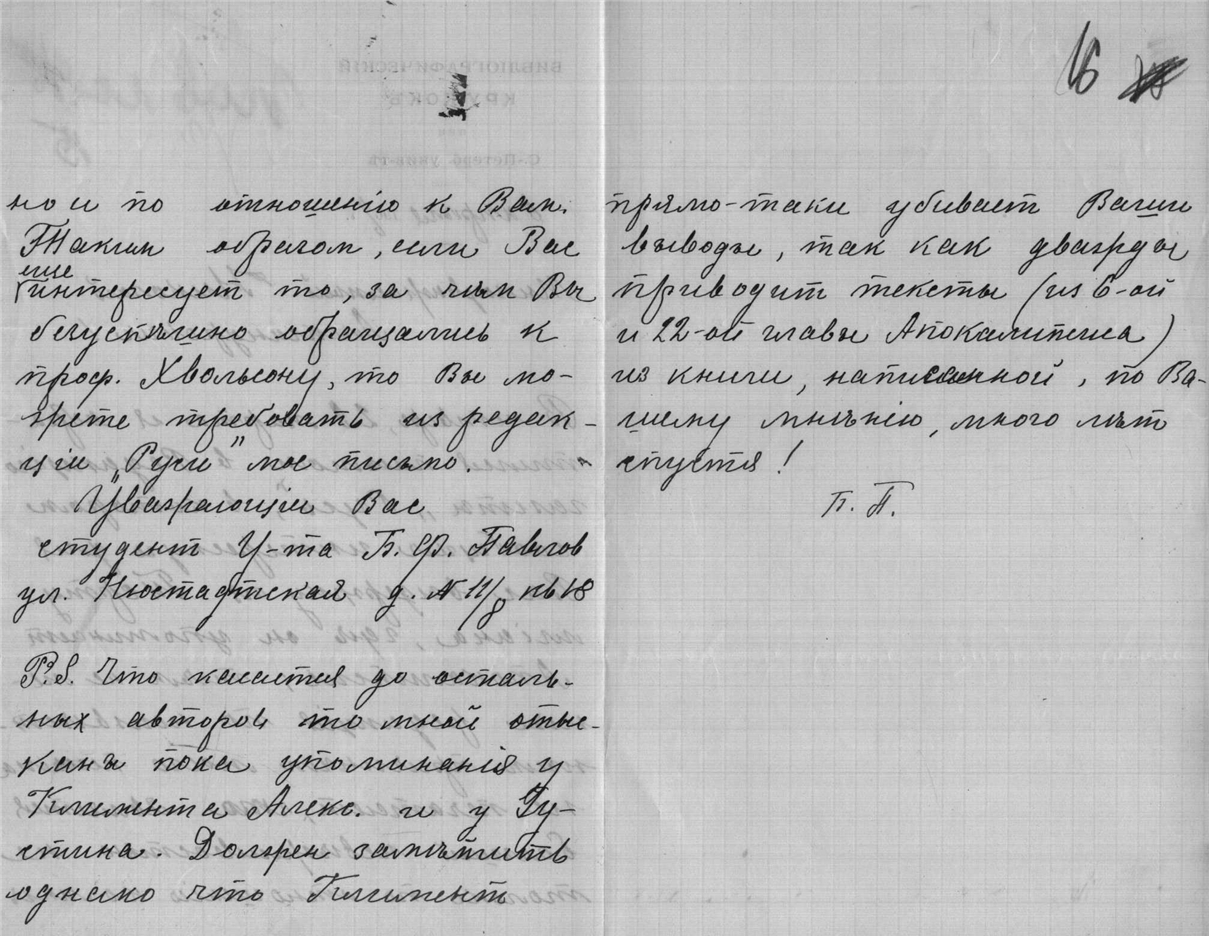 но и по отношенію к Вам.
Таким образом, если Вас
еще
интересует то, за чѣм Вы
безуспѣшно обращались к
проф. Хвольсону, то Вы мо-
жете требовать из редак-
ціи „Руси" мое письмо.
Уважающій Вас
студент У-та Б. Ф. Павлов
ул. Нюстадтская д. № 11/8 кв 18
P.S. Что касается до осталь-
ных авторов то мной отыс-
каны пока упоминанія у
Климента Алекс. и у Іу-
стина. Должен замѣтить
однако что Климент
16
прямо-таки убивает Ваши
выводы, так как дважды
приводит тексты (из 6-ой
и 22-ой главы Апокалипсиса)
из книги, написанной, по Ва-
шему мнѣнію, много лѣт
спустя!
Б. П.
БИБЛІОГРАФИЧЕСКІЙ
КРУЖОКЪ
С.-Петерб. унив-тъ